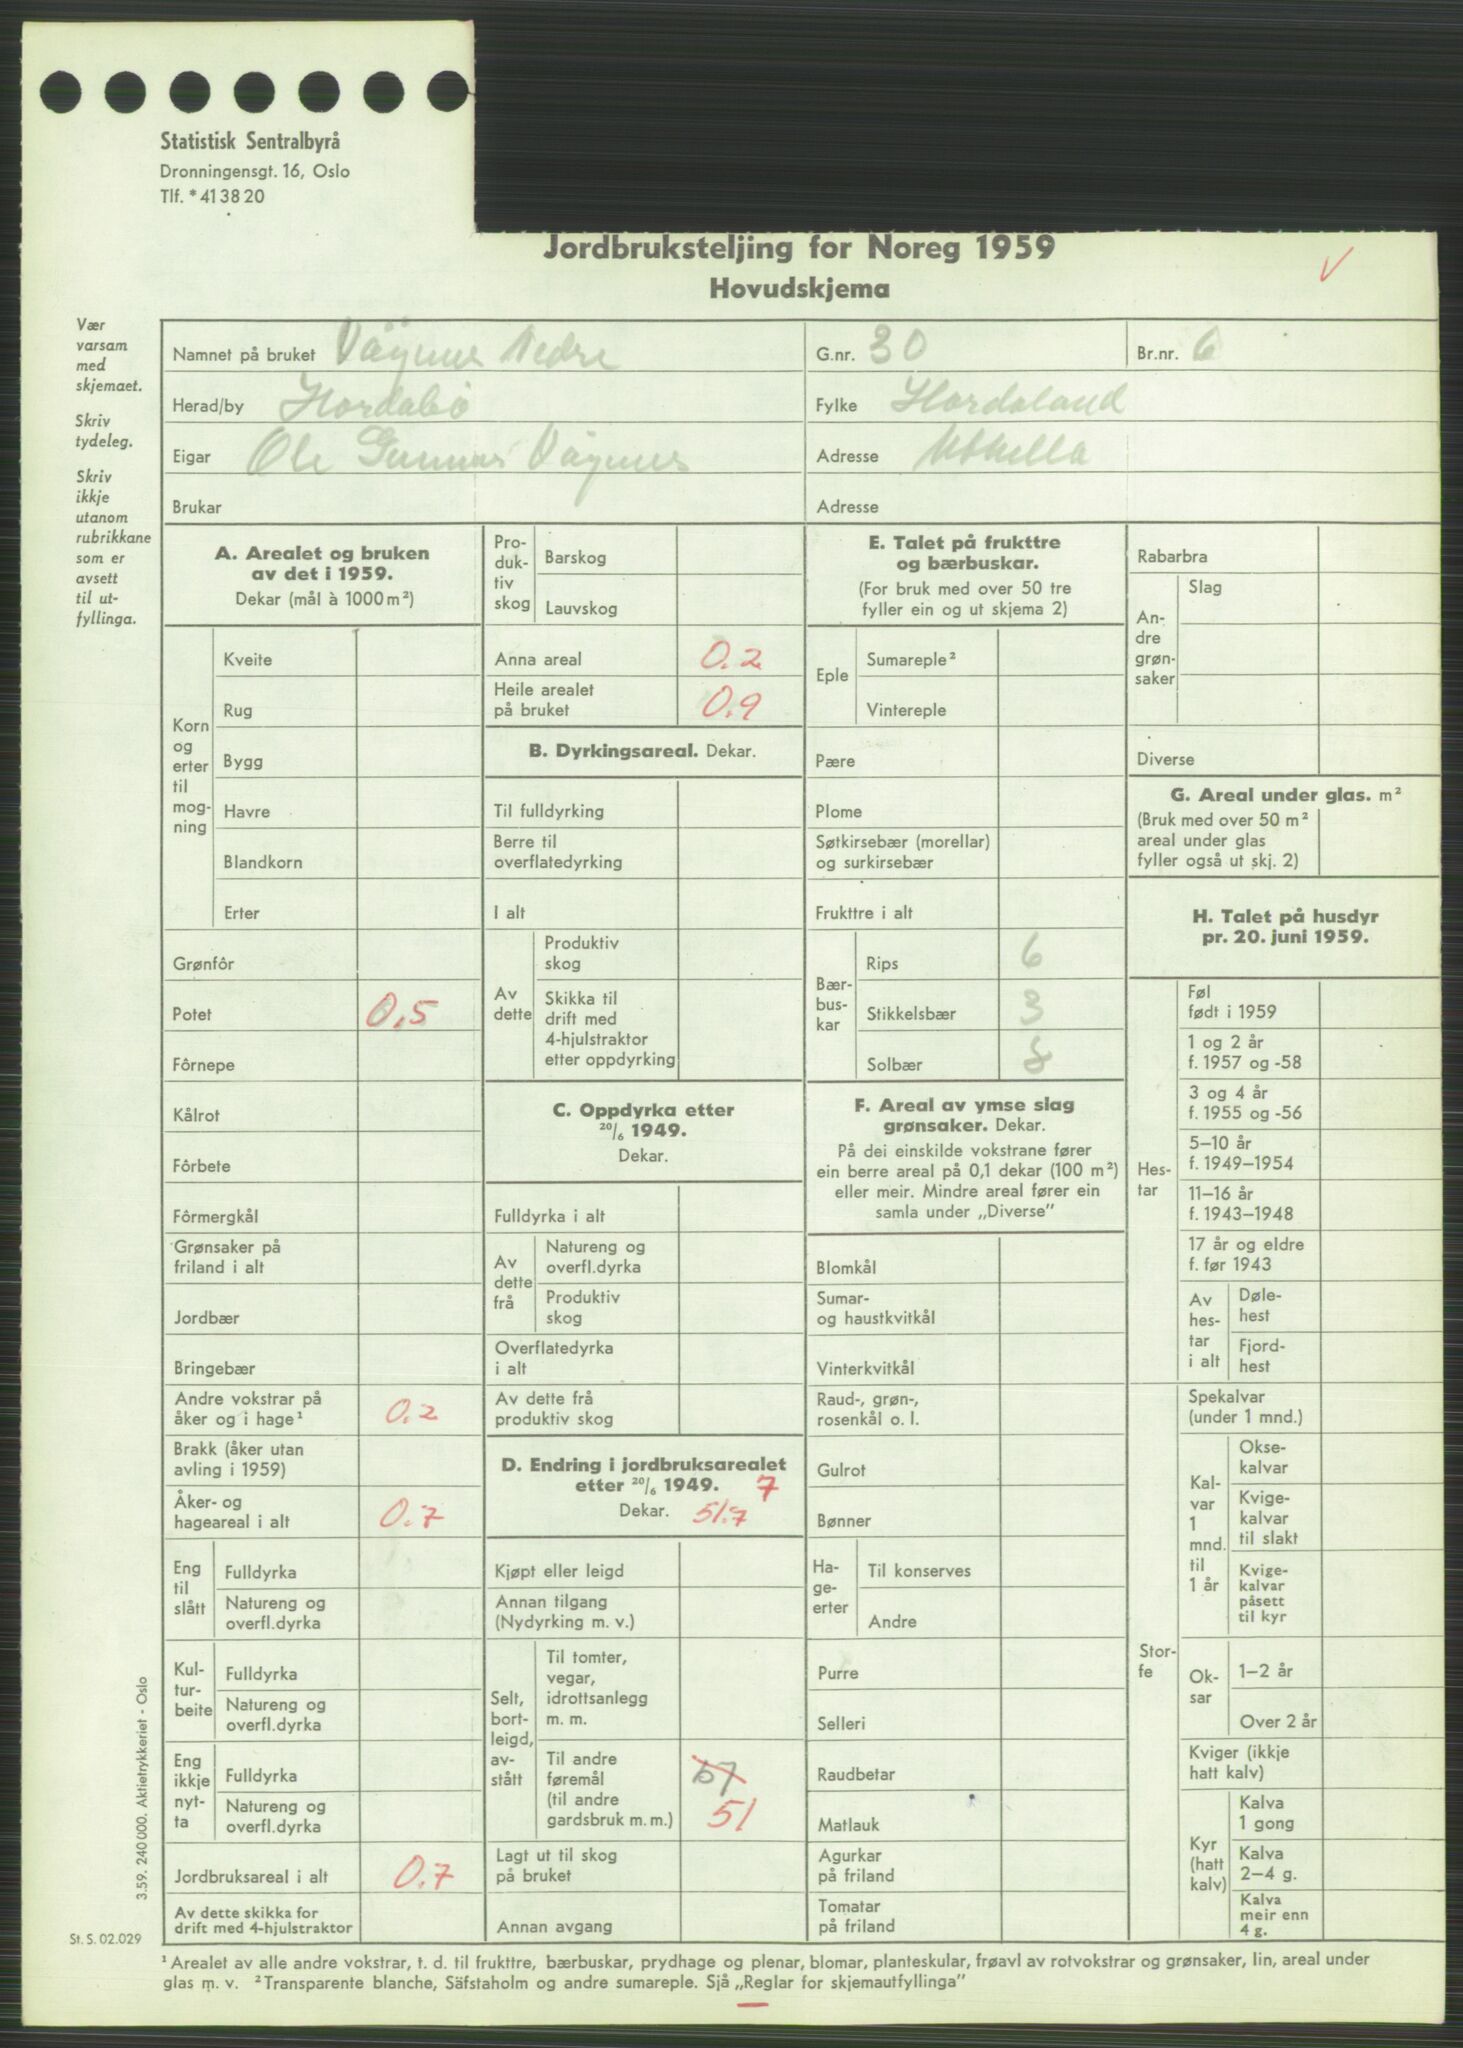 Statistisk Sentralbyrå
Dronningensgt. 16, Oslo
Tlf. *41 38 20
Jordbruksteljing for Noreg 1959
Hovudskjema
Vær
varsam
med
skjemaet.
Skriv
tydeleg.
Skriv
ikkje
utanom
rubrikkane
som er
avsett
til ut-
fyllinga.
Namnet på bruket Vågenes Nedre G.nr. 30 Br.nr. 6
Herad/by Hordabø Fylke Hordaland
Eigar Ole Gunnar Vågenes Adresse
Brukar Adresse
A. Arealet og bruken
av det i 1959.
Dekar (mål à 1000 m²)
Korn
og
erter
til
mog-
ning
Kveite
Rug
Bygg
Havre
Blandkorn
Erter
Grønfôr
Potet 0,5
Fôrnepe
Kålrot
Fôrbete
Fôrmergkål
Grønsaker på
friland i alt
Jordbær
Bringebær
Andre vokstrar på
åker og i hage¹ 0.2
Brakk (åker utan
avling i 1959)
Åker- og
hageareal i alt 0.7
Eng
til
slått
Fulldyrka
Natureng og
overfl.dyrka
Kul-
tur-
beite
Fulldyrka
Natureng og
overfl.dyrka
Eng
ikkje
nyt-
ta
Fulldyrka
Natureng og
overfl.dyrka
Jordbruksareal i alt 0.7
Av dette skikka for
drift med 4-hjulstraktor
Pro-
duk-
tiv
skog
Barskog
Lauvskog
Anna areal 0.2
Heile arealet
på bruket 0.9
B. Dyrkingsareal. Dekar.
Til fulldyrking
Berre til
overflatedyrking
I alt
Av
dette
Produktiv
skog
Skikka til
drift med
4-hjulstraktor
etter oppdyrking
C. Oppdyrka etter
20/6 1949.
Dekar.
Fulldyrka i alt
Av
dette
frå
Natureng og
overfl.dyrka
Produktiv
skog
Overflatedyrka
i alt
Av dette frå
produktiv skog
D. Endring i jordbruksarealet
etter 20/6 1949. 7
Dekar. 51.7
Kjøpt eller leigd
Annan tilgang
(Nydyrking m. v.)
Selt,
bort-
leigd,
av-
stått
Til tomter,
vegar,
idrottsanlegg
m. m.
Til andre
føremål
(til andre
gardsbruk m. m.)
51
Lagt ut til skog
på bruket
Annan avgang
E. Talet på frukttre
og bærbuskar.
(For bruk med over 50 tre
fyller ein og ut skjema 2)
Eple
Sumareple²
Vintereple
Pære
Plome
Søtkirsebær (morellar)
og surkirsebær
Frukttre i alt
Bær-
bus-
kar
Rips 6
Stikkelsbær 3
Solbær 8
F. Areal av ymse slag
grønsaker. Dekar.
På dei einskilde vokstrane fører
ein berre areal på 0,1 dekar (100 m²)
eller meir. Mindre areal fører ein
samla under „Diverse”
Blomkål
Sumar-
og haustkvitkål
Vinterkvitkål
Raud-, grøn-,
rosenkål o. l.
Gulrot
Bønner
Ha-
ge-
erter
Til konserves
Andre
Purre
Selleri
Raudbetar
Matlauk
Agurkar
på friland
Tomatar
på friland
Rabarbra
An-
dre
grøn-
saker
Slag
Diverse
G. Areal under glas. m²
(Bruk med over 50 m²
areal under glas
fyller også ut skj. 2)
H. Talet på husdyr
pr. 20. juni 1959.
Hes-
tar
Føl
født i 1959
1 og 2 år
f. 1957 og -58
3 og 4 år
f. 1955 og -56
5–10 år
f. 1949–1954
11–16 år
f. 1943–1948
17 år og eldre
f. før 1943
Av
hes-
tar
i alt
Døle-
hest
Fjord-
hest
Stor-
fe
Spekalvar
(under 1 mnd.)
Kal-
var
1
mnd.
til
1 år
Okse-
kalvar
Kvige-
kalvar
til slakt
Kvige-
kalvar
påsett
til kyr
Ok-
sar
1–2 år
Over 2 år
Kviger (ikkje
hatt kalv)
Kyr
(hatt
kalv)
Kalva
1 gong
Kalva
2–4 g.
Kalva
meir enn
4 g.
3.59. 240 000. Aktietrykkeriet - Oslo
St. S. 02.029
¹ Arealet av alle andre vokstrar, t. d. til frukttre, bærbuskar, prydhage og plenar, blomar, planteskular, frøavl av rotvokstrar og grønsaker, lin, areal under
glas m. v. ² Transparente blanche, Säfstaholm og andre sumareple. Sjå „Reglar for skjemautfyllinga”